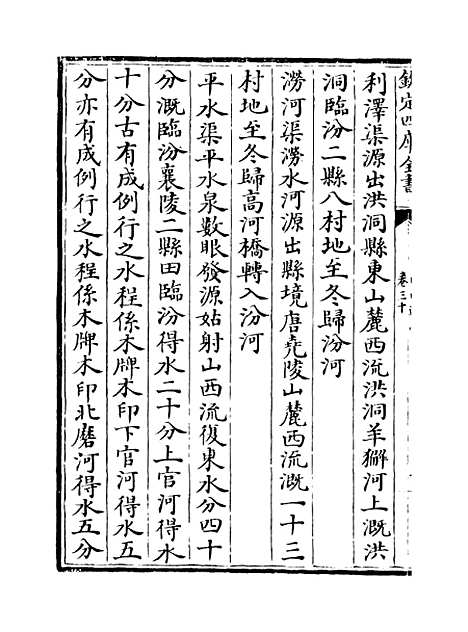 欽定四庫全書
卷三十
利澤渠源出洪洞縣東山麓西流洪洞羊獬河上溉洪
洞臨汾二縣八村地至冬歸汾河
澇河渠澇水河源出縣境唐堯陵山麓西流溉一十三
村地至冬歸高河橋轉入汾河
平水渠平水泉數眼發源姑射山西流復東水分四十
分溉臨汾襄陵二縣田臨汾得水二十分上官河得水
十分古有成例行之水程係木牌木印下官河得水五
分亦有成例行之水程係木牌木印北磨河得水五分